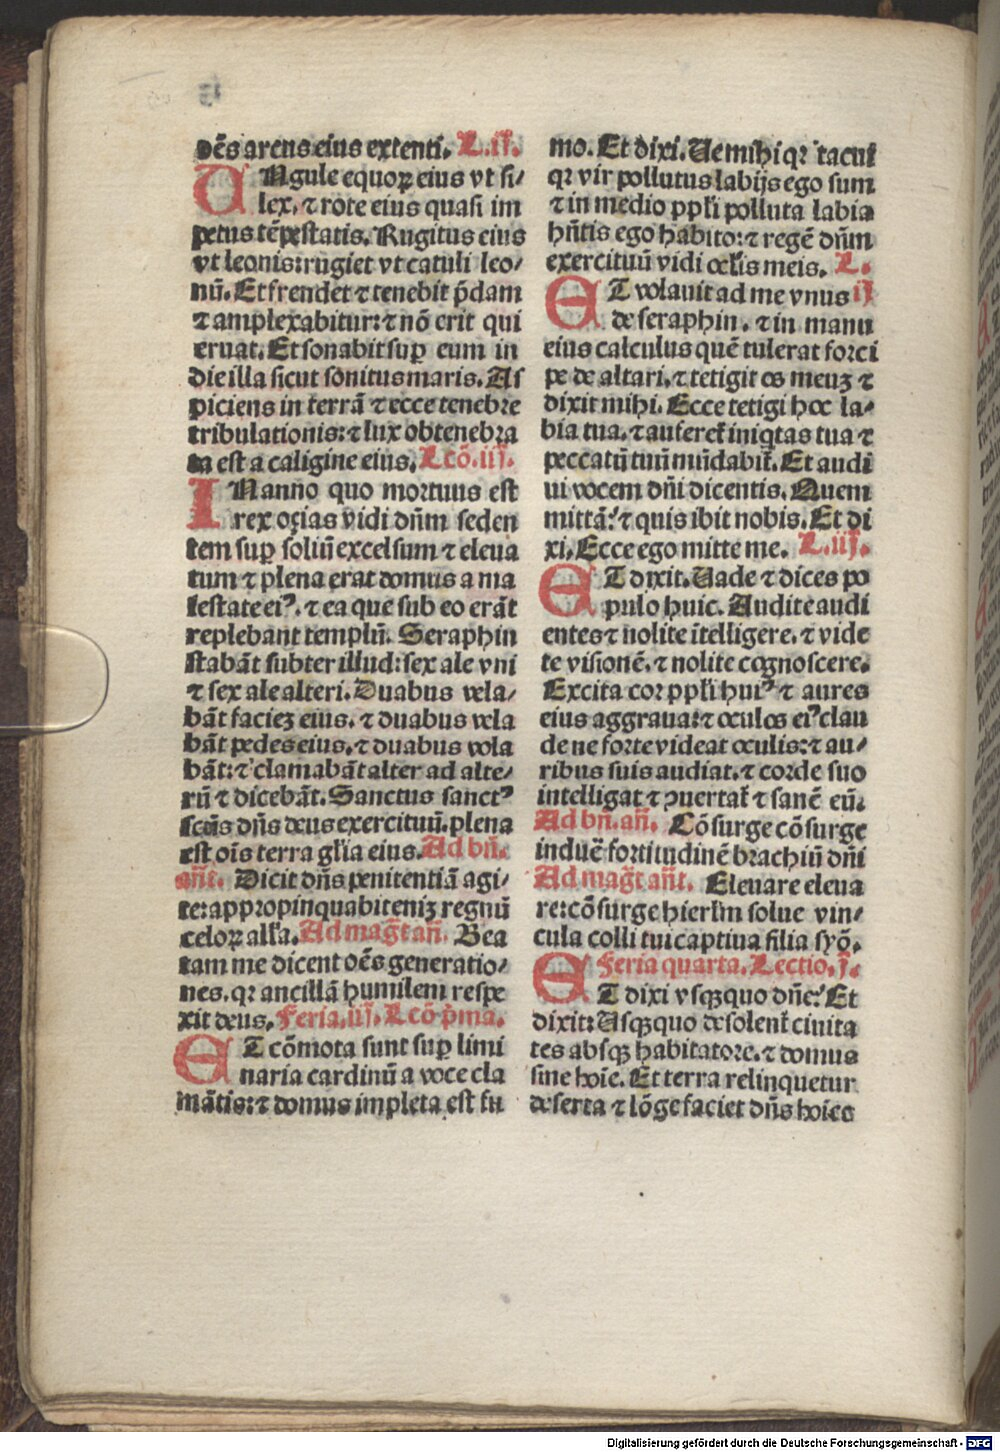 oēs arcus eius extenti. L.ij.
VNgule equoꝝ eius vt si⸗
lex. ⁊ rote eius quasi im
petus tēpestatis. Rugitus eius
vt leonis: rugiet vt catuli leo⸗
nū. Et frendet ⁊ tenebit p̄dam
⁊ amplexabitur: ⁊ nō erit qui
eruat. Et sonabit suꝑ eum in
die illa sicut sonitus maris. As
piciens in terrā ⁊ ecce tenebre
tribulationis: ⁊ lux obtenebra
ta est a caligine eius. Lcō.iij.
IN anno quo mortuus est
rex ozias vidi dn̄m seden
tem suꝑ soliū excelsum ⁊ eleua
tum ⁊ plena erat domus a ma
iestate eiꝰ. ⁊ ea que sub eo erāt
replebant templū. Seraphin
stabāt subter illud: sex ale vni
⁊ sex ale alteri. Duabus vela⸗
bāt facieꝫ eius. ⁊ duabus vela
bāt pedes eius. ⁊ duabus vola
bāt: ⁊ clamabāt alter ad alte⸗
rū ⁊ dicebāt. Sanctus sanctꝰ
scūs dn̄s deus exercituū. plena
est oīs terra gl̓ia eius. Ad bn̄.
an̄t. Dicit dn̄s penitentiā agi⸗
te: appropinquabit eniꝫ regnū
celoꝝ all̓a. Ad mag̅t an̄. Bea
tam me dicent oēs generatio⸗
nes. qꝛ ancillā humilem respe
xit deus. Feria.iij. Lcō p̄ma.
ET cōmota sunt suꝑ limi
naria cardinū a voce cla
mātis: ⁊ domus impleta est fu
mo. Et dixi. Ue mihi qꝛ tacui
qꝛ vir pollutus labijs ego sum
⁊ in medio ppl̓i polluta labia
hn̄tis ego habito: ⁊ regē dn̄m
exercituū vidi ocl̓is meis. L.
ET volauit ad me vnus ij
de seraphin. ⁊ in manu
eius calculus quē tulerat forci
pe de altari. ⁊ tetigit os meuꝫ ⁊
dixit mihi. Ecce tetigi hoc la⸗
bia tua. ⁊ auferet̄ iniq̇tas tua ⁊
peccatū tuū mūdabit̄. Et audi
ui vocem dn̄i dicentis. Quem
mittā? ⁊ quis ibit nobis. Et di
xi. Ecce ego mitte me. L.iij.
ET dixit. Uade ⁊ dices po
pulo huic. Audite audi
entes ⁊ nolite ītelligere. ⁊ vide
te visionē. ⁊ nolite cognoscere.
Excita cor ppl̓i huiꝰ ⁊ aures
eius aggraua: ⁊ oculos eiꝰ clau
de ne forte videat oculis: ⁊ au⸗
ribus suis audiat. ⁊ corde suo
intelligat ⁊ ꝯuertat̄ ⁊ sanē eū.
Ad bn̄. an̄. Cōsurge cōsurge
induē fortitudinē brachiū dn̄i
Ad mag̅t an̄t. Eleuare eleua
re: cōsurge hierl̓m solue vin⸗
cula colli tui captiua filia syō.
Feria quarta. Lectio. j.
ET dixi vsqꝫquo dn̄e? Et
dixit: Usqꝫquo desolent̄ ciuita
tes absqꝫ habitatore. ⁊ domus
sine hoīe. Et terra relinquetur
deserta ⁊ lōge faciet dn̄s hoīes
Digitalisierung gefördert durch die Deutsche Forschungsgemeinschaft - DFG